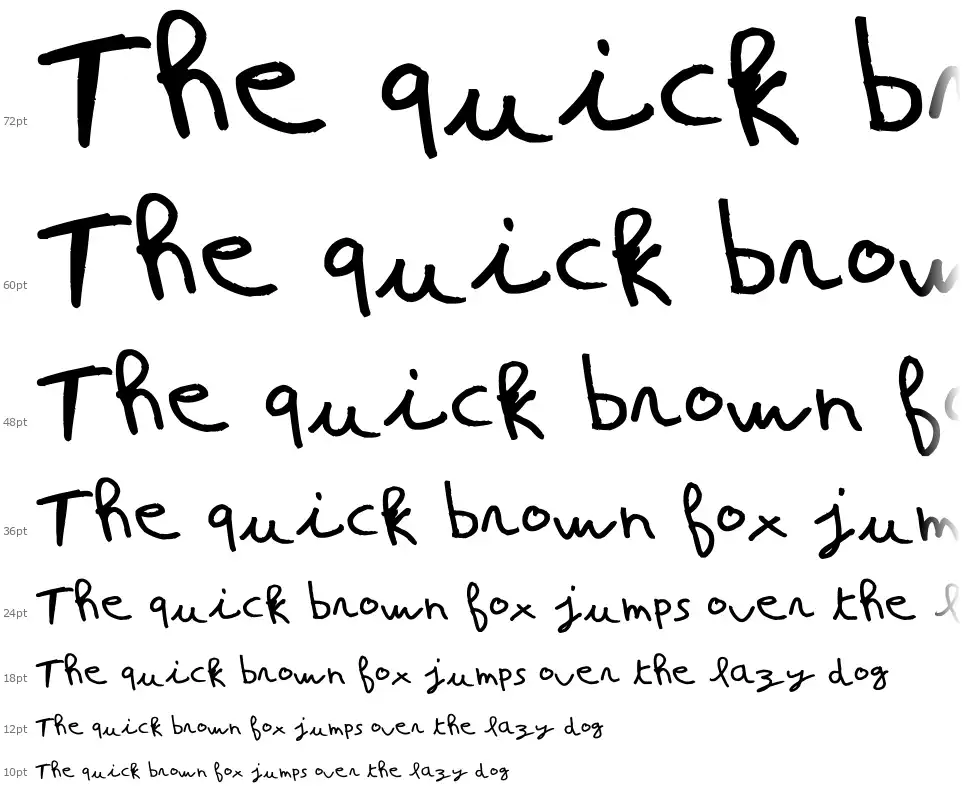 72pt The quick br
60pt The quick brow
48pt The quick brown f
36pt The quick brown fox jum
24pt The quick brown fox jumps over the l
18pt The quick brown fox jumps over the lazy dog
12pt The quick brown fox jumps over the lazy dog
10pt The quick brown fox jumps over the lazy dog